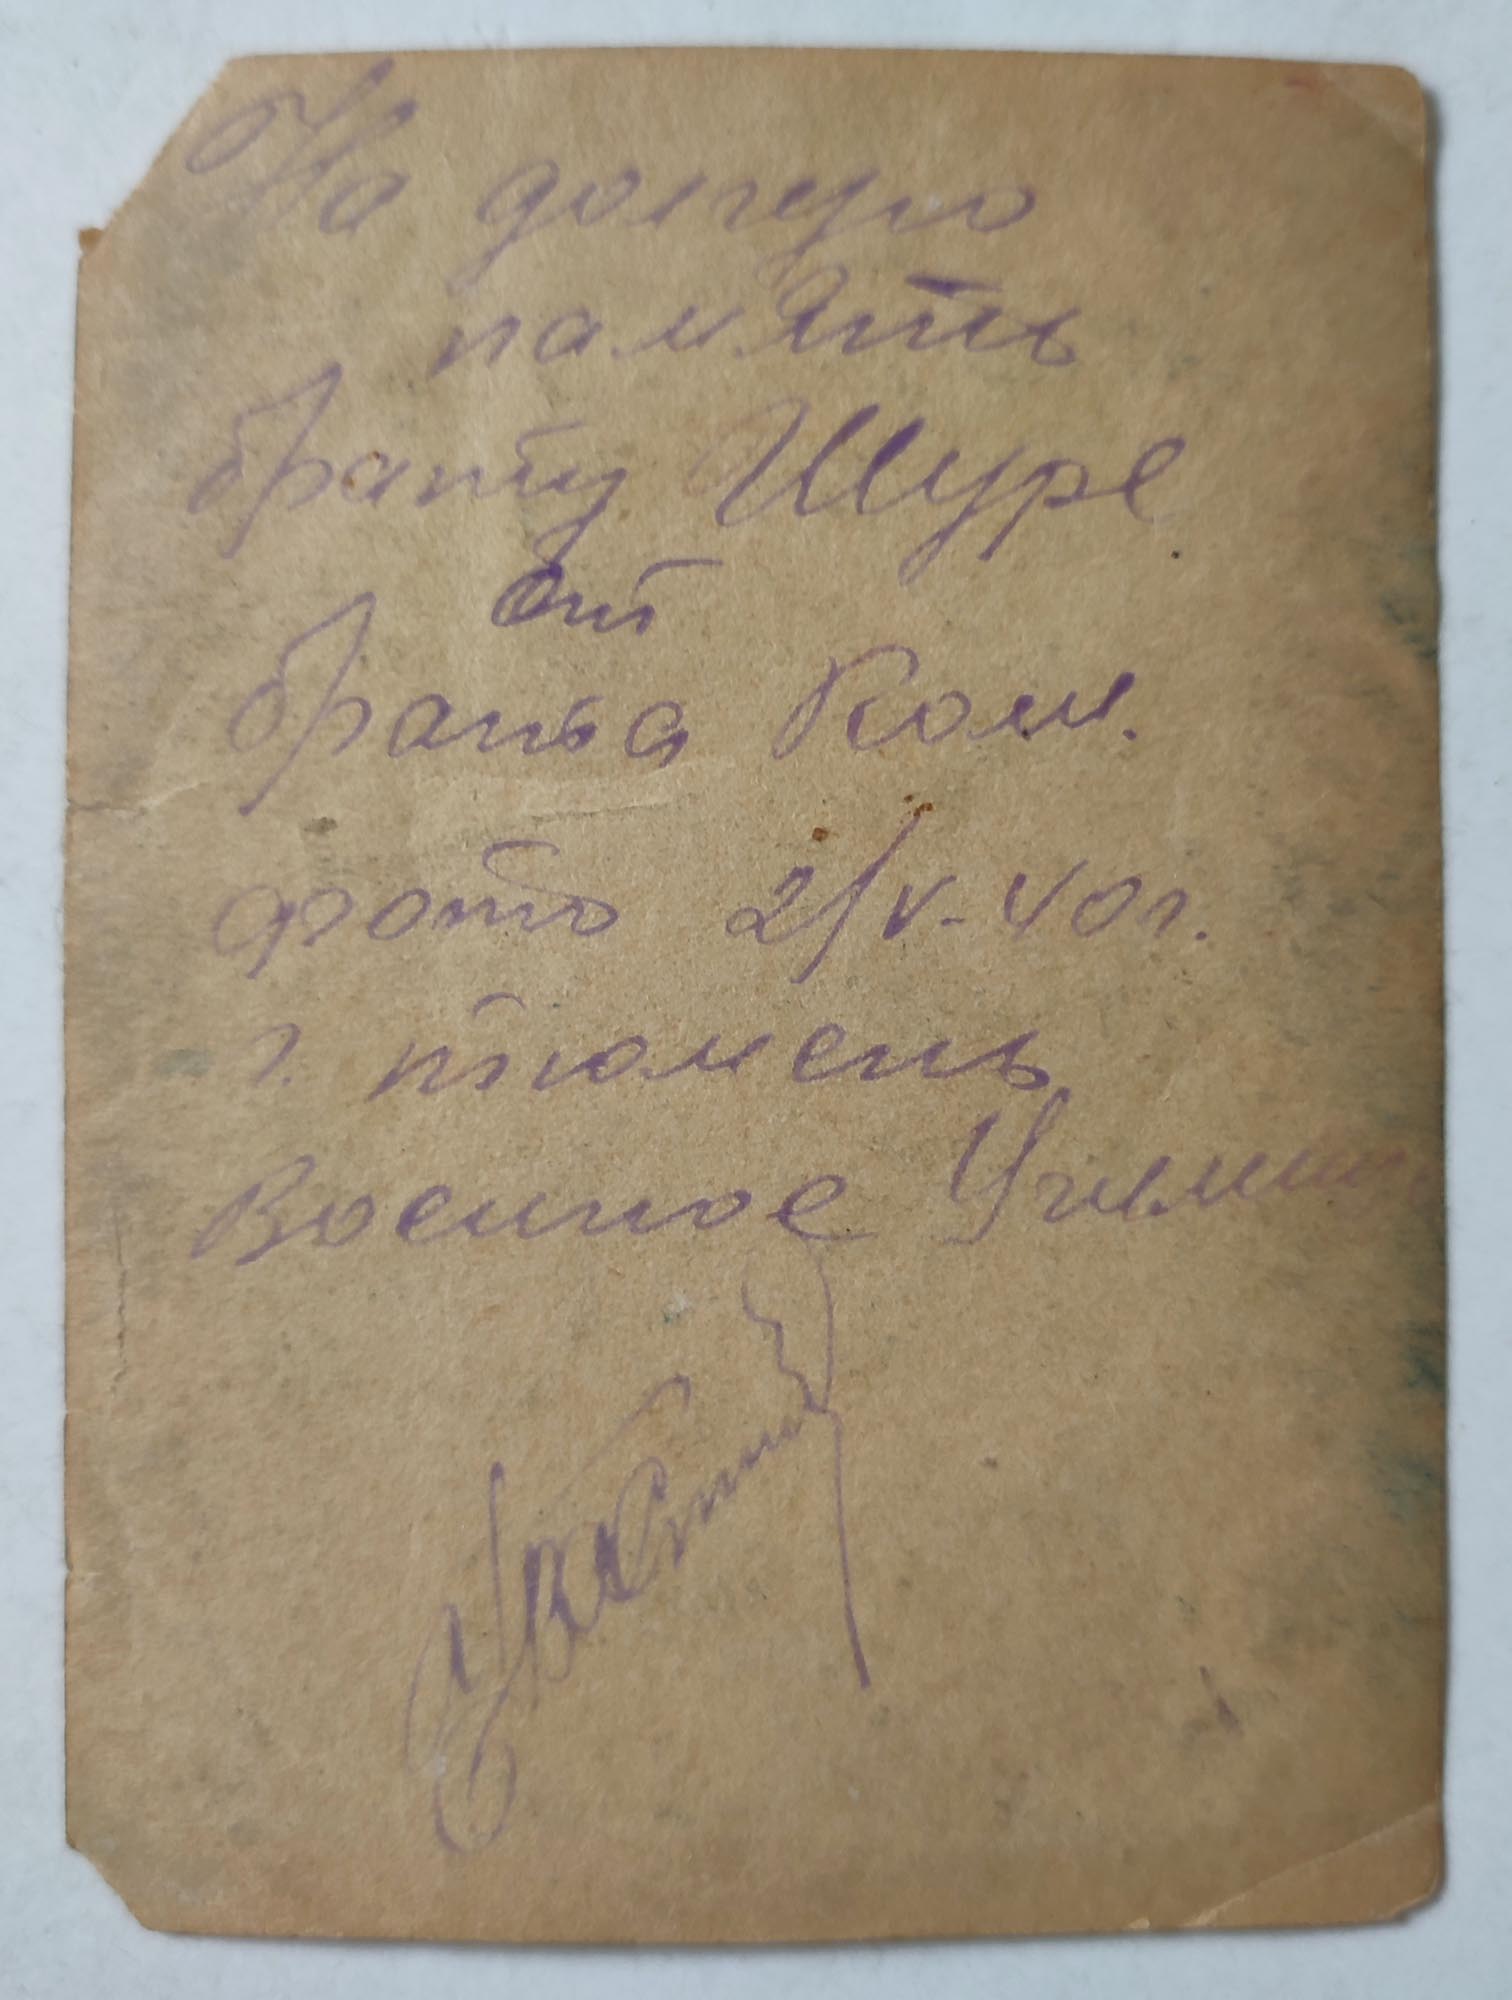 На долгую
память
брату Шуре
от
брата Коли.
фото 2/V-40г.
г. тюмень
Военное